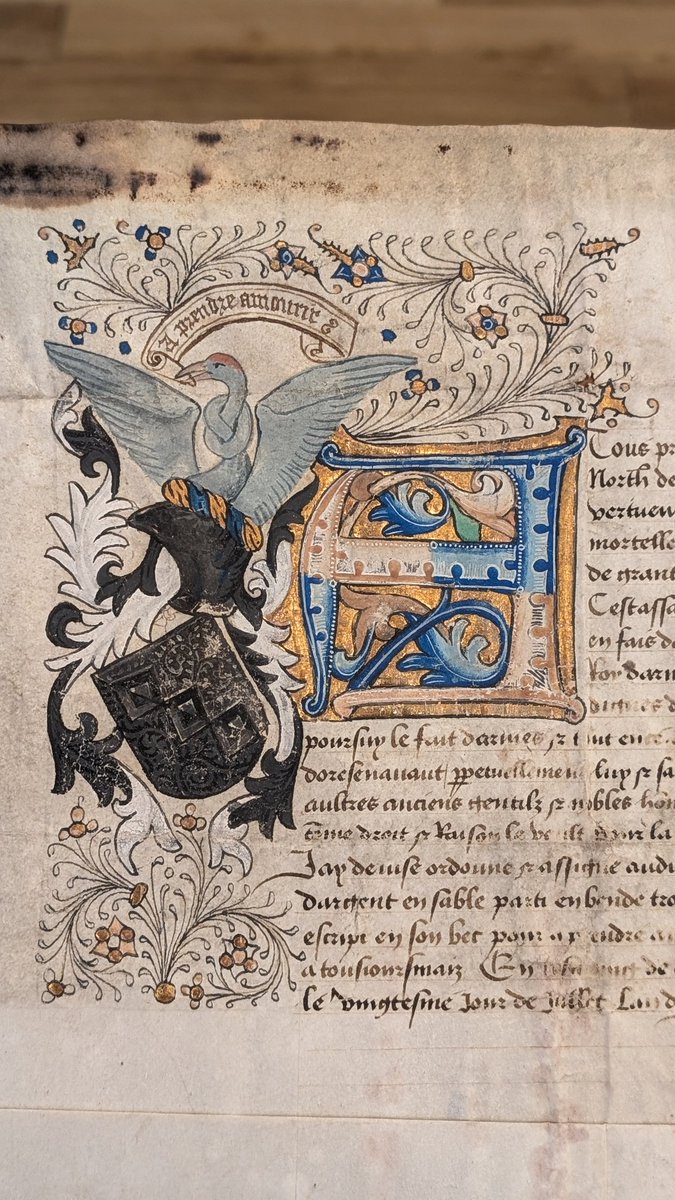 A prendre amourir
A Tous pr
North de
vertueu
mortelle
de grant
Cest assa
en fais de
Roy darm
dignes d
poursuy le fait darmes et tout
doresenavant ppetuellement luy et sa
aultres anciens gentilz et nobles hom
droit et Raison le veult pour la
Jay devise ordonne et assigne audi
dargent en sable parti en bende tro
escript en son bec pour aprendre a
a tousioursmaiz En de
le vingtesme Jour de Juillet Lan d